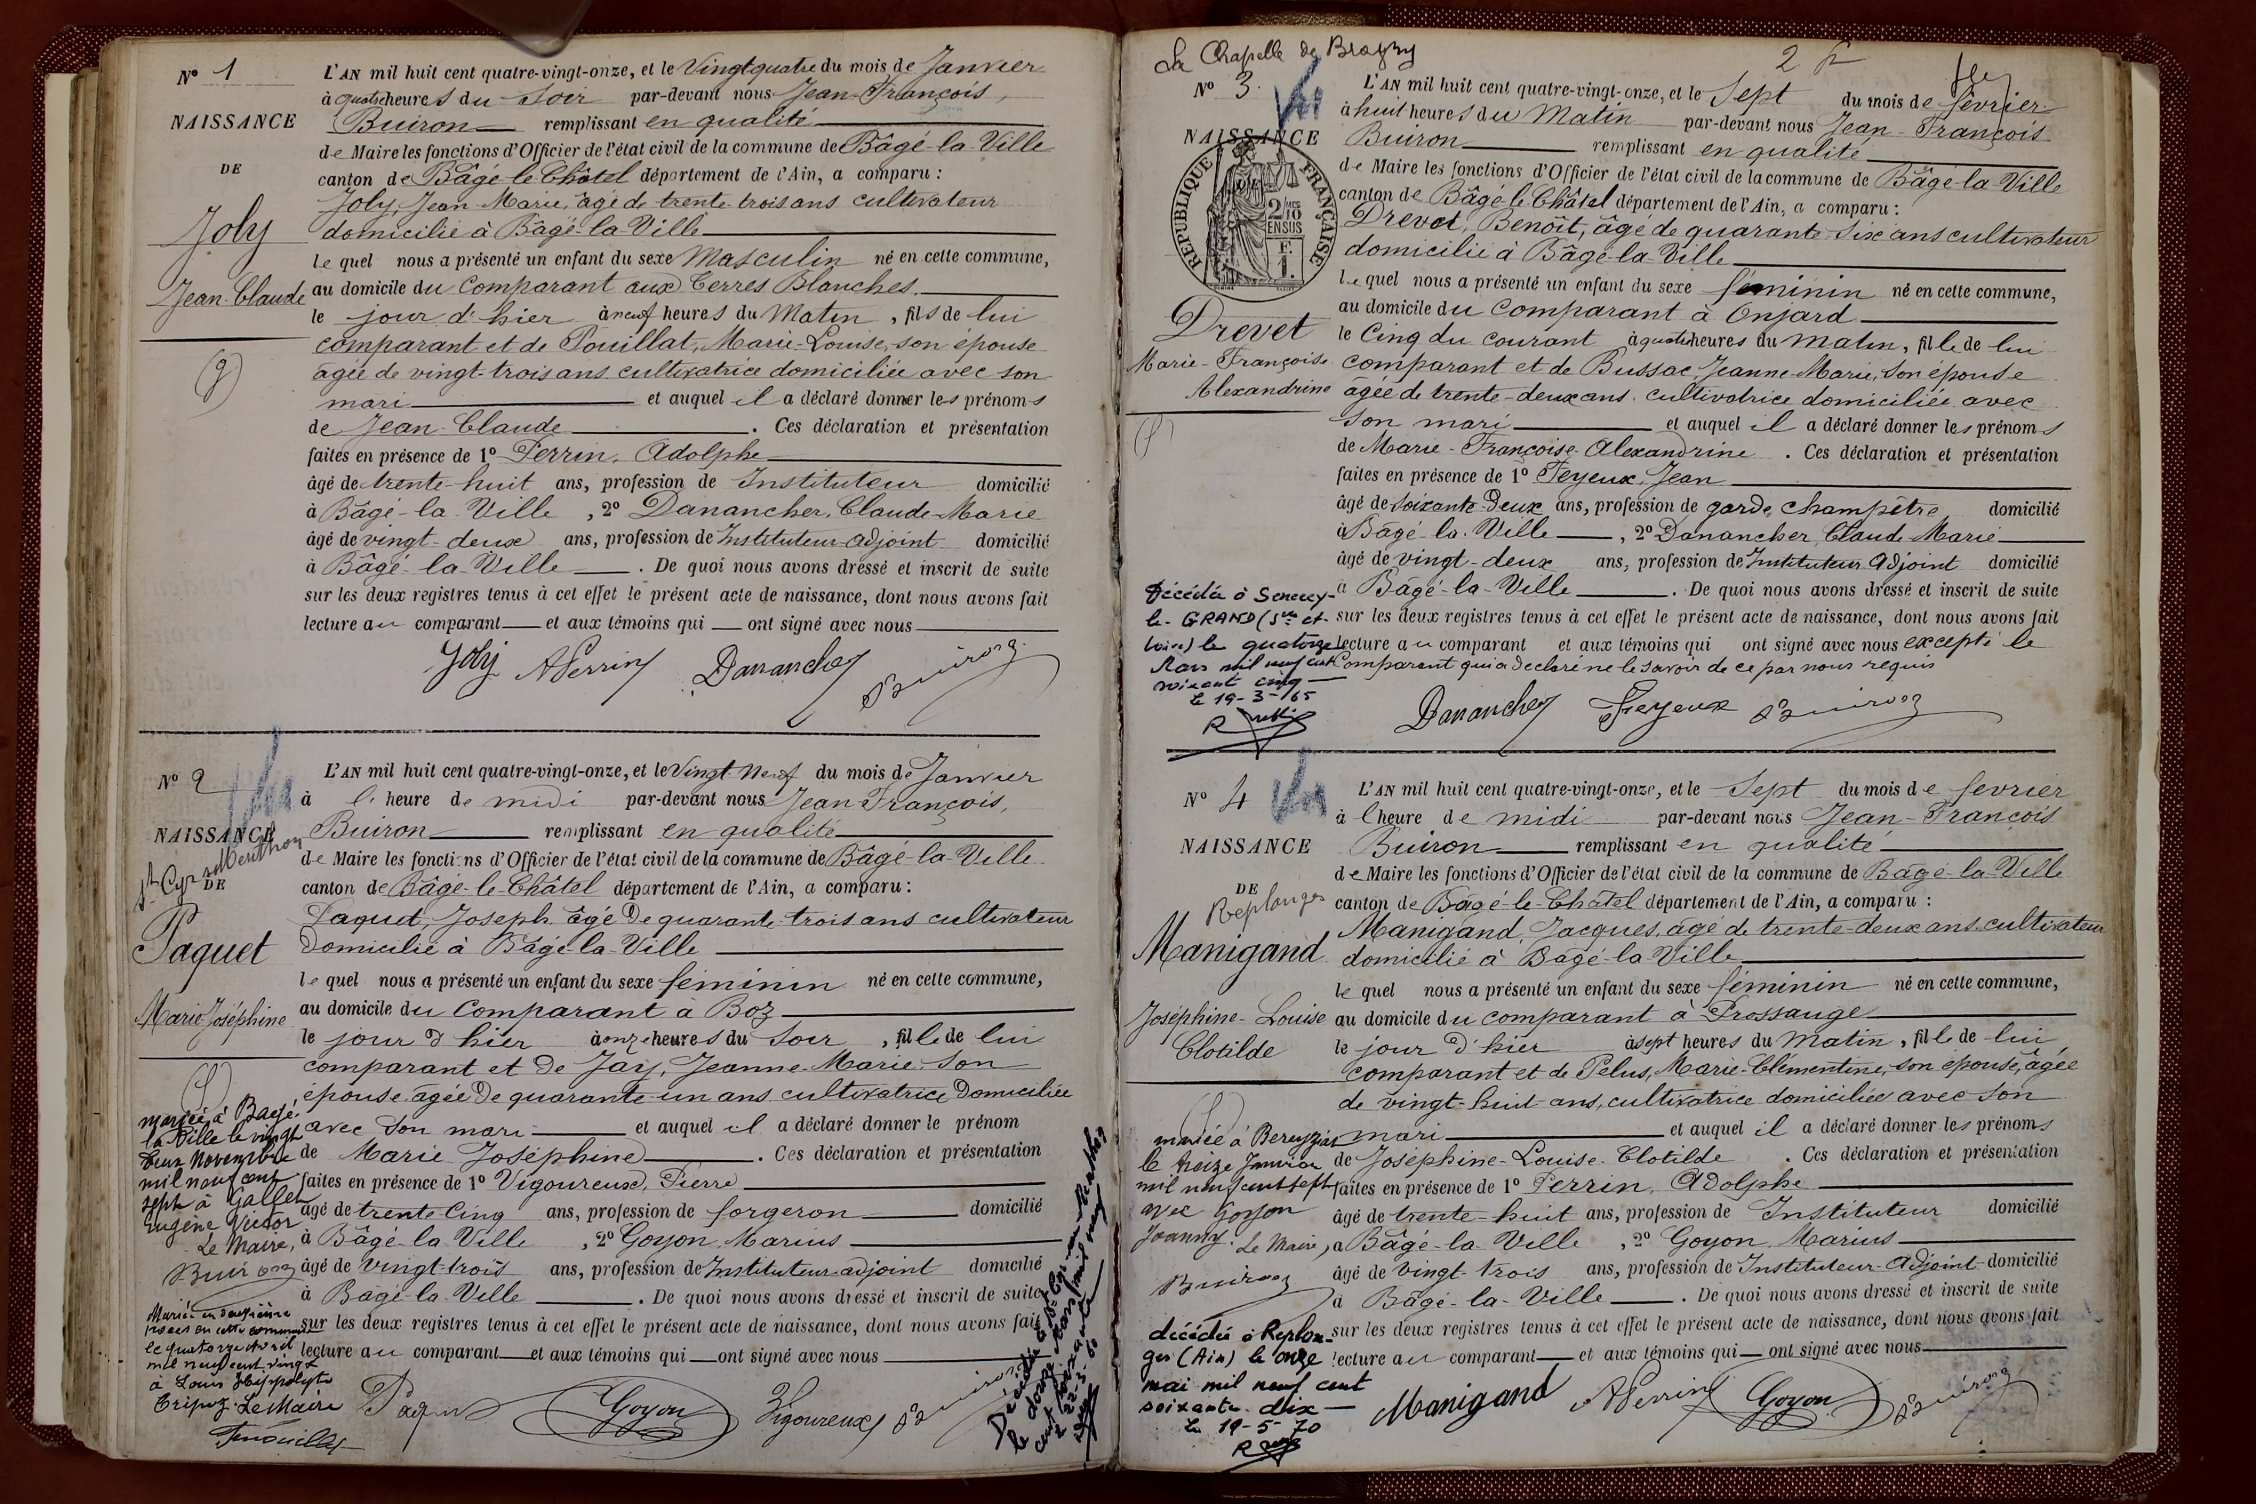 N° 1
NAISSANCE
DE
Joly
Jean-Claude
L'AN mil huit cent quatre-vingt-onze, et le Vingt quatre du mois de Janvier
à quatre heures du Soir par-devant nous Jean-François,
Buiron remplissant en qualité
de Maire les fonctions d'Officier de l'état civil de la commune de Bâgé-la-Ville
canton de Bâgé-le-Châtel département de l'Ain, a comparu :
Joly, Jean-Marie, âgé de trente-trois ans cultivateur
domicilié à Bâgé-la-Ville
lequel nous a présenté un enfant du sexe Masculin né en cette commune,
au domicile du Comparant aux Terres Blanches
le jour d'hier à neuf heures du Matin, fils de lui
comparant et de Pouillat, Marie-Louise, son épouse
âgée de vingt-trois ans cultivatrice domiciliée avec son
mari et auquel il a déclaré donner les prénoms
de Jean-Claude. Ces déclaration et présentation
faites en présence de 1° Perrin, Adolphe
âgé de trente-huit ans, profession de Instituteur domicilié
à Bâgé-la-Ville, 2° Danancher, Claude-Marie
âgé de vingt-deux ans, profession de Instituteur-adjoint domicilié
à Bâgé-la-Ville. De quoi nous avons dressé et inscrit de suite
sur les deux registres tenus à cet effet le présent acte de naissance, dont nous avons fait
lecture au comparant et aux témoins qui ont signé avec nous
Joly APerrin Danancher Buiron
N° 2
NAISSANCE
St Cyr s Menthon
DE
Paquet
Marie Joséphine
L'AN mil huit cent quatre-vingt-onze, et le Vingt Neuf du mois de Janvier
à l' heure de midi par-devant nous Jean François,
Buiron remplissant en qualité
de Maire les fonctions d'Officier de l'état civil de la commune de Bâgé-la-Ville
canton de Bâgé-le-Châtel département de l'Ain, a comparu :
Paquet, Joseph âgé de quarante-trois ans cultivateur
Domicilié à Bâgé-la-Ville
lequel nous a présenté un enfant du sexe féminin né en cette commune,
au domicile du Comparant à Boz
le jour d'hier à onze heures du Soir, fille de lui
comparant et de Jay, Jeanne-Marie son
épouse âgée de quarante-un ans cultivatrice Domiciliée
avec son mari et auquel il a déclaré donner le prénom
de Marie Joséphine. Ces déclaration et présentation
faites en présence de 1° Vigoureux, Pierre
âgé de trente cinq ans, profession de forgeron domicilié
à Bâgé-la-Ville, 2° Goyon, Marius
âgé de vingt-trois ans, profession de Instituteur-adjoint domicilié
à Bâgé-la-Ville. De quoi nous avons dressé et inscrit de suite
sur les deux registres tenus à cet effet le présent acte de naissance, dont nous avons fait
lecture au comparant et aux témoins qui ont signé avec nous
Paquet Goyon Vigoureux Buiron
mariée à Bagé
la Ville le vingt
deux Novembre
mil neuf cent
sept à Gallet
Eugène Victor
Le Maire,
Buiron
Mariée en deuxième
noces en cette commune
le quatorze Avril
mil neuf cent vingt
à Louis Hyppolyte
Tripoz Le Maire
Décédée à St Cyr sur Menthon
le douze Mars mil neuf
cent soixante
La Chapelle de Bragny
2
N° 3
NAISSANCE
RÉPUBLIQUE FRANÇAISE
2/10 EN SUS
F. 1.
Drevet
Marie-Françoise
Alexandrine
L'AN mil huit cent quatre-vingt-onze, et le Sept du mois de février
à huit heures du Matin par-devant nous Jean-François
Buiron remplissant en qualité
de Maire les fonctions d'Officier de l'état civil de la commune de Bâgé-la-Ville
canton de Bâgé-le-Châtel département de l'Ain, a comparu :
Drevet, Benoît, âgé de quarante-six ans cultivateur
domicilié à Bâgé-la-Ville
lequel nous a présenté un enfant du sexe féminin né en cette commune,
au domicile du comparant à Onjard
le Cinq du courant à quatre heures du matin, fille de lui
comparant et de Bussac, Jeanne-Marie, son épouse
âgée de trente-deux ans cultivatrice domiciliée avec
son mari et auquel il a déclaré donner les prénoms
de Marie-Françoise-Alexandrine. Ces déclaration et présentation
faites en présence de 1° Feyeux, Jean
âgé de soixante-deux ans, profession de garde champêtre domicilié
à Bâgé-la-Ville, 2° Danancher, Claude-Marie
âgé de vingt-deux ans, profession de Instituteur Adjoint domicilié
à Bâgé-la-Ville. De quoi nous avons dressé et inscrit de suite
sur les deux registres tenus à cet effet le présent acte de naissance, dont nous avons fait
lecture au comparant et aux témoins qui ont signé avec nous excepté le
Comparant qui a déclaré ne le savoir de ce par nous requis
Danancher Feyeux Buiron
Décédée à Sennecey-
le-GRAND (Sne et-
Loire) le quatorze
Mars mil neuf cent
soixante cinq
Le 19-3-65
N° 4
NAISSANCE
DE
Replonges
Manigand
Joséphine-Louise
Clotilde
L'AN mil huit cent quatre-vingt-onze, et le Sept du mois de fevrier
à l'heure de midi par-devant nous Jean-François
Buiron remplissant en qualité
de Maire les fonctions d'Officier de l'état civil de la commune de Bâgé-la-Ville
canton de Bâgé-le-Châtel département de l'Ain, a comparu :
Manigand, Jacques, âgé de trente-deux ans cultivateur
domicilié à Bâgé-la-Ville
lequel nous a présenté un enfant du sexe féminin né en cette commune,
au domicile du comparant à Brossange
le jour d'hier à sept heures du Matin, fille de lui
comparant et de Pelus, Marie-Clémentine, son épouse, âgée
de vingt-huit ans, cultivatrice domiciliée avec son
mari et auquel il a déclaré donner les prénoms
de Joséphine-Louise-Clotilde. Ces déclaration et présentation
faites en présence de 1° Perrin, Adolphe
âgé de trente-huit ans, profession de Instituteur domicilié
à Bâgé-la-Ville, 2° Goyon, Marius
âgé de vingt-trois ans, profession de Instituteur-Adjoint domicilié
à Bâgé-la-Ville. De quoi nous avons dressé et inscrit de suite
sur les deux registres tenus à cet effet le présent acte de naissance, dont nous avons fait
lecture au comparant et aux témoins qui ont signé avec nous
Manigand APerrin Goyon Buiron
mariée à Bereyziat
le treize Janvier
mil neuf cent sept
avec Goyon
Joanny. Le Maire,
Buiron
décédée à Replon-
ges (Ain) le onze
mai mil neuf cent
soixante-dix
Le 19-5-70